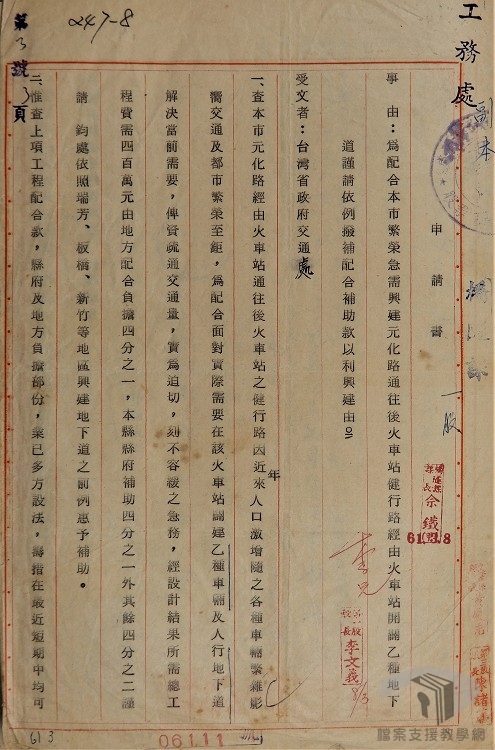 工務處
副本
247-8
第3號3頁
申請書
一股
61.3.8
事由：爲配合本市繁榮急需興建元化路通往後火車站健行路經由火車站開闢乙種地下
道謹請依例撥補配合補助款以利興建由。
受文者：台灣省政府交通處
一、查本市元化路經由火車站通往後火車站之健行路因近年來人口激增隨之各種車輛繁雜影
響交通及都市繁榮至鉅，爲配合面對實際需要在該火車站闢建乙種車輛及人行地下道
解決當前需要，俾資疏通交通量，實爲迫切，刻不容緩之急務，經設計結果所需總工
程費需四百萬元由地方配合負擔四分之一，本縣縣府補助四分之一外其餘四分之二謹
請　鈞處依照瑞芳、板橋、新竹等地區興建地下道之前例惠予補助。
二、惟查上項工程配合款，縣府及地方負擔部份，業已多方設法，籌措在最近短期中均可
李文義
8/3
613
061.11
檔案支援教學網